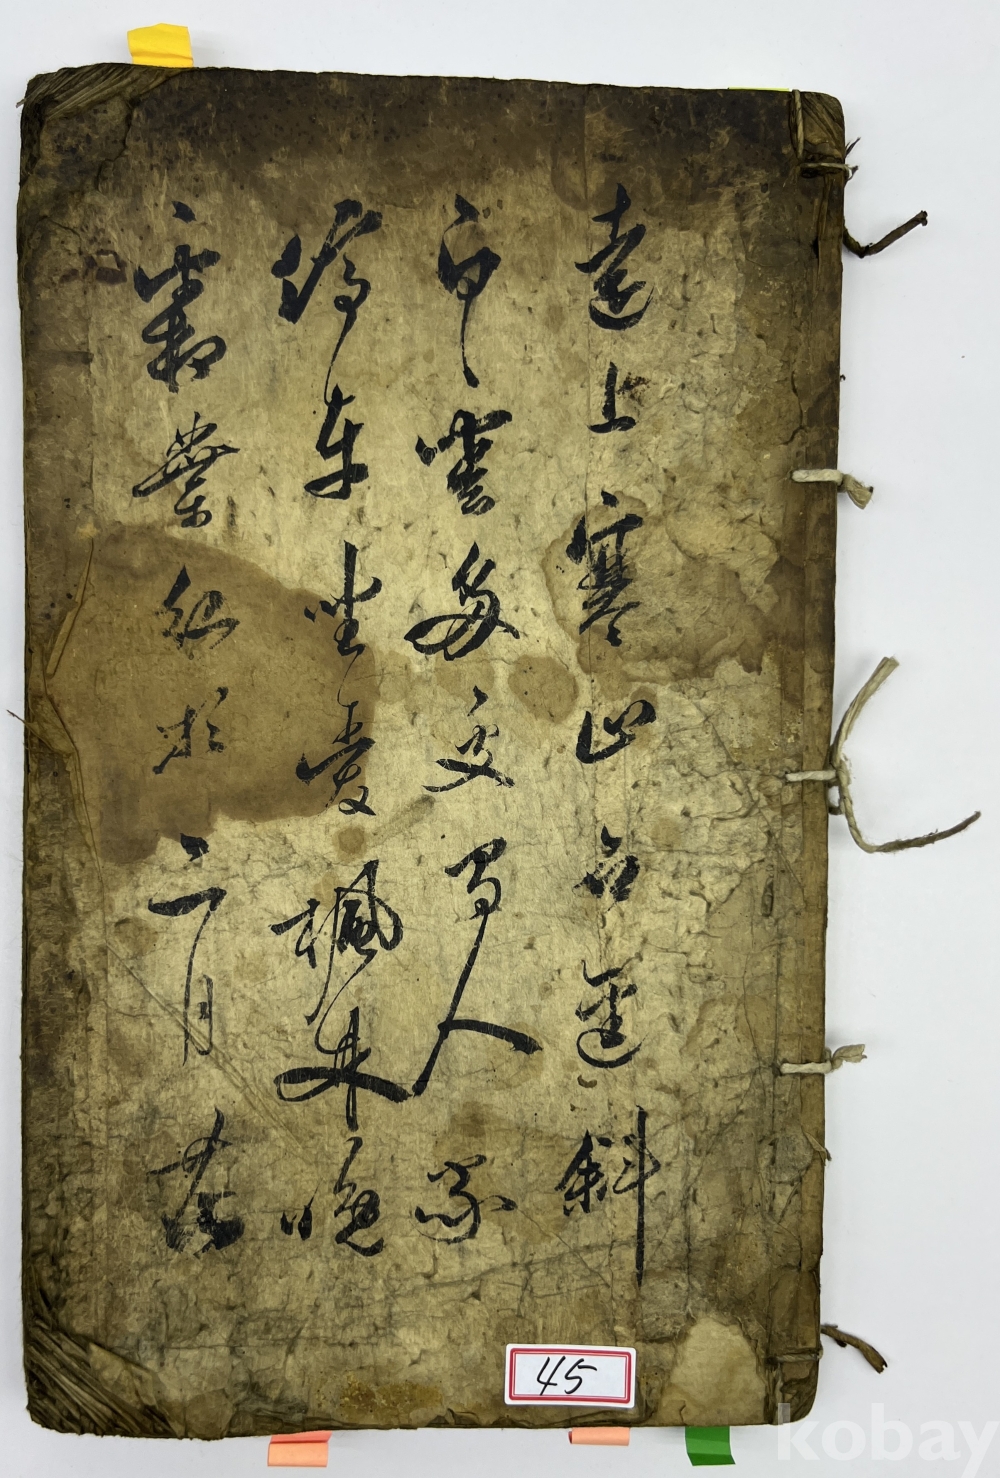 遠上寒山石逕斜
白雲多處有人家
停車坐愛楓林晚
霜葉紅於二月花
45
kobay